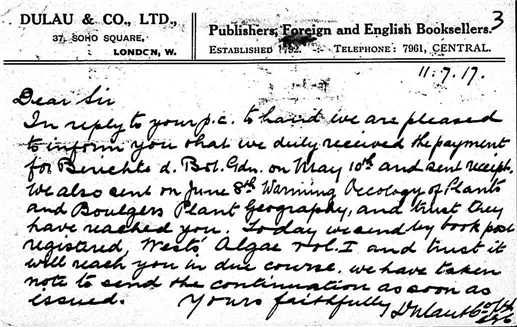 3
DULAU & CO., LTD.,
37, SOHO SQUARE,
LONDON, W.
Publishers, Foreign and English Booksellers.
ESTABLISHED 1792. TELEPHONE: 7961, CENTRAL.
11.7.17.
Dear Sir
In reply to your p.c. to hand we are pleased
to inform you that we duly received the payment
for Berichte d. Bot. Gdn. on May 10th and sent receipt.
We also sent on June 8th Warming Oecology of Plants
and Boulgers Plant Geography, and trust they
have reached you. Today we send by book post
registered, Wests' Algae Vol. I and trust it
will reach you in due course. We have taken
note to send the continuation as soon as
issued. Yours faithfully Dulau & Co Ltd